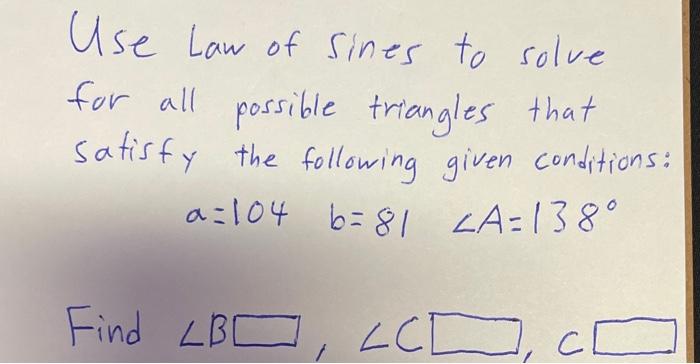 Use Law of Sines to solve
for all possible triangles that
satisfy the following given conditions:
a=104 b=81 ∠A=138°
Find ∠B▭, ∠C▭, c▭